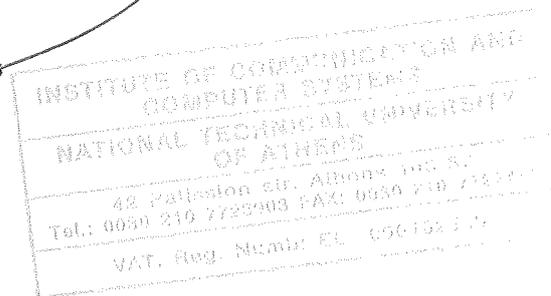 INSTITUTE OF COMMUNICATION AND
COMPUTER SYSTEMS
NATIONAL TECHNICAL UNIVERSITY
OF ATHENS
42 Patission str. Athens
Tel.: 0030 210 FAX: 0030 210
VAT. Reg. Numb: EL